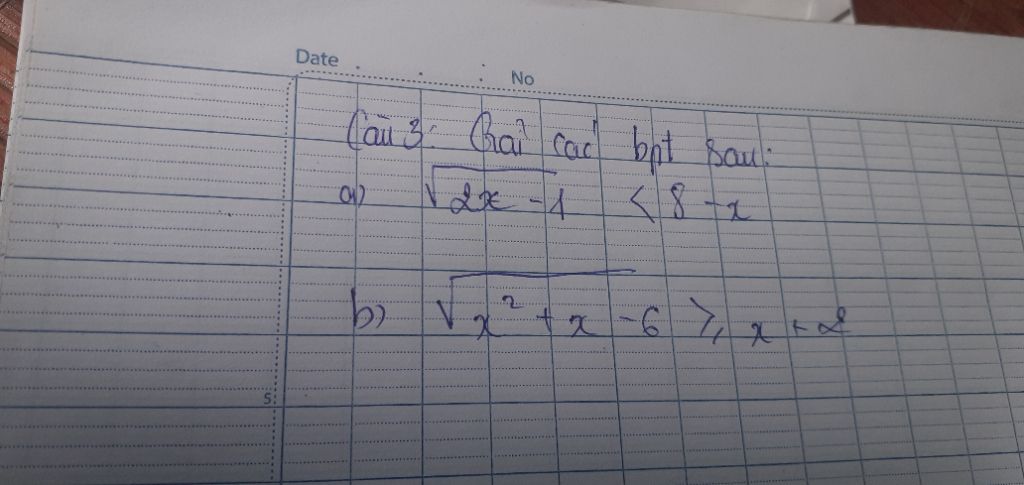 Date . . :
No
Câu 3: Giải các bpt sau:
a) √2x - 1 < 8 - x
b) √x² + x - 6 ≥ x + 2
5